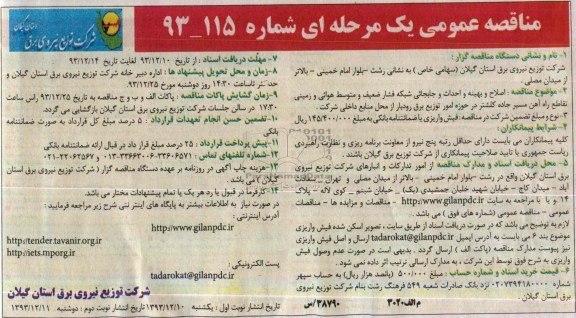 مناقصه عمومی یک مرحله ای شماره ۱۱۵_۹۳
شرکت توزیع نیروی برق
استان گیلان
۱- نام و نشانی دستگاه مناقصه گزار :
شرکت توزیع نیروی برق استان گیلان (سهامی خاص) به نشانی رشت -بلوار امام خمینی - بالاتر از میدان مصلی.
۲- موضوع مناقصه : اصلاح و بهینه و احداث و جابجائی شبکه فشار ضعیف و متوسط هوائی و زمینی
تقاطع راه آهن مسیر جاده گلشتر در حوزه امور توزیع برق رودبار از محل منابع داخلی شرکت
۳- نوع و مبلغ تضمین شرکت در مناقصه: فیش واریزی یا ضمانتنامه بانکی به مبلغ ۱۴۵/۴۰۰/۰۰۰ ریال
۴- شرایط پیمانکاران :
کلیه پیمانکاران می بایست دارای حداقل رتبه پنج نیرو از معاونت برنامه ریزی و نظارت راهبردی
ریاست جمهوری یا تایید صلاحیت پیمانکاری از شرکت توزیع برق گیلان باشند.
۵- محل دریافت اسناد و مدارک مناقصه : از امور تدارکات و انبارهای شرکت توزیع نیروی
برق استان گیلان واقع در رشت -بلوار امام خمینی -بالاتر از میدان مصلی و تهران - سعادت
آباد - میدان کاج - خیابان شهید خلیان جمشیدی (یک) _ خیابان شبنم _ کوی لاله - پلاک
۱۴ و یا با مراجعه به سایت http://www.gilanpdc.ir - مناقصات و مزایده ها - مناقصات
عمومی - مناقصه عمومی (شماره های فوق ) می باشد .
لازم به توضیح می باشد که در صورت دریافت اسناد از طریق سایت ، تصویر اسکن شده فیش واریزی
موضوع بند ۶ می بایست به آدرس ایمیل tadarokat@gilanpdc.ir ارسال و اصل فیش واریزی
نیز پیوست مدارک مناقصه (پاکت الف ) ارسال گردد . بدیهی است در صورت عدم وصول فیش
واریزی به شرح فوق توسط این شرکت ، به مدارک ارسالی ترتیب اثر داده نمی شود .
۶- قیمت خرید اسناد و شماره حساب : مبلغ ۵۰۰/۰۰۰ (پانصد هزار ریال) به حساب سپهر
۰۲۰۷۳۹۴۱۸۰۰۰۰ نزد بانک صادرات شعبه ۵۴۹ فرهنگ رشت بنام شرکت توزیع نیروی
برق استان گیلان .
م الف ۳۰۲۰
۳۸۷۹۰/س
۷- مهلت دریافت اسناد : از تاریخ ۹۳/۱۲/۱۰ لغایت تاریخ ۹۳/۱۲/۱۴
۸- زمان و محل تحویل پیشنهاد ها : اداره دبیر خانه شرکت توزیع نیروی برق استان گیلان و
حداکثر تا ساعت ۱۴:۳۰ روز دوشنبه مورخ ۹۳/۱۲/۲۵
۹- زمان گشایش پاکات مناقصه : پاکات الف و ب و ج مناقصه به تاریخ ۹۳/۱۲/۲۵ راس ساعت
۱۷:۳۰ در سالن جلسات شرکت توزیع نیروی برق استان گیلان بازگشایی می گردد.
۱۰- تضمین حسن انجام تعهدات قرارداد : ۵ درصد مبلغ کل قرارداد به صورت ضمانتنامه
بانکی
۱۱- پیش پرداخت قرارداد : ۲۵ درصد مبلغ قرار داد در قبال ارائه ضمانتنامه بانکی
۱۲- شماره تلفنهای تماس : ۳۳۶۰۶۵۷۱-۰۱۳-۳۳۳۶۶۳۰۶ ۰۲۱-۲۲۰۶۲۵۶۷
۱۳- هزینه چاپ آگهی در روزنامه بر عهده دستگاه مناقصه گزار ( شرکت توزیع برق استان
گیلان ) می باشد.
۱۴- کارفرما در قبول یا رد هر یک یا تمام پیشنهادات مختار می باشد.
در صورت نیاز به اطلاعات بیشتر به پایگاه های اینترنتی شرح زیر مراجعه فرمایید :
آدرس اینترنتی :
http://www.gilanpdc.ir
http://tender.tavanir.org.ir
http://iets.mporg.ir
پست الکترونیکی :
tadarokat@gilanpdc.ir
شرکت توزیع نیروی برق استان گیلان
تاریخ انتشار نوبت اول : یکشنبه ۱۳۹۳/۱۲/۱۰ تاریخ انتشار نوبت دوم : دوشنبه ۱۳۹۳/۱۲/۱۱